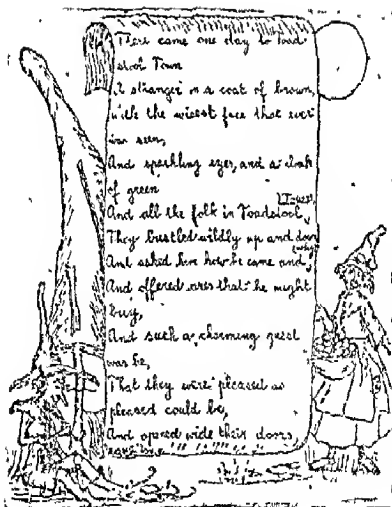 There came one day to Toad
stool Town
A stranger in a coat of brown,
With the wisest face that ever
was seen,
And sparkling eyes, and a cloak
of green
And all the folk in Toadstool Town
They bustled wildly up and down
And asked him how he came and why
And offered wares that he might
buy,
And such a charming guest
was he,
That they were pleased as
pleased could be,
And opened wide their doors